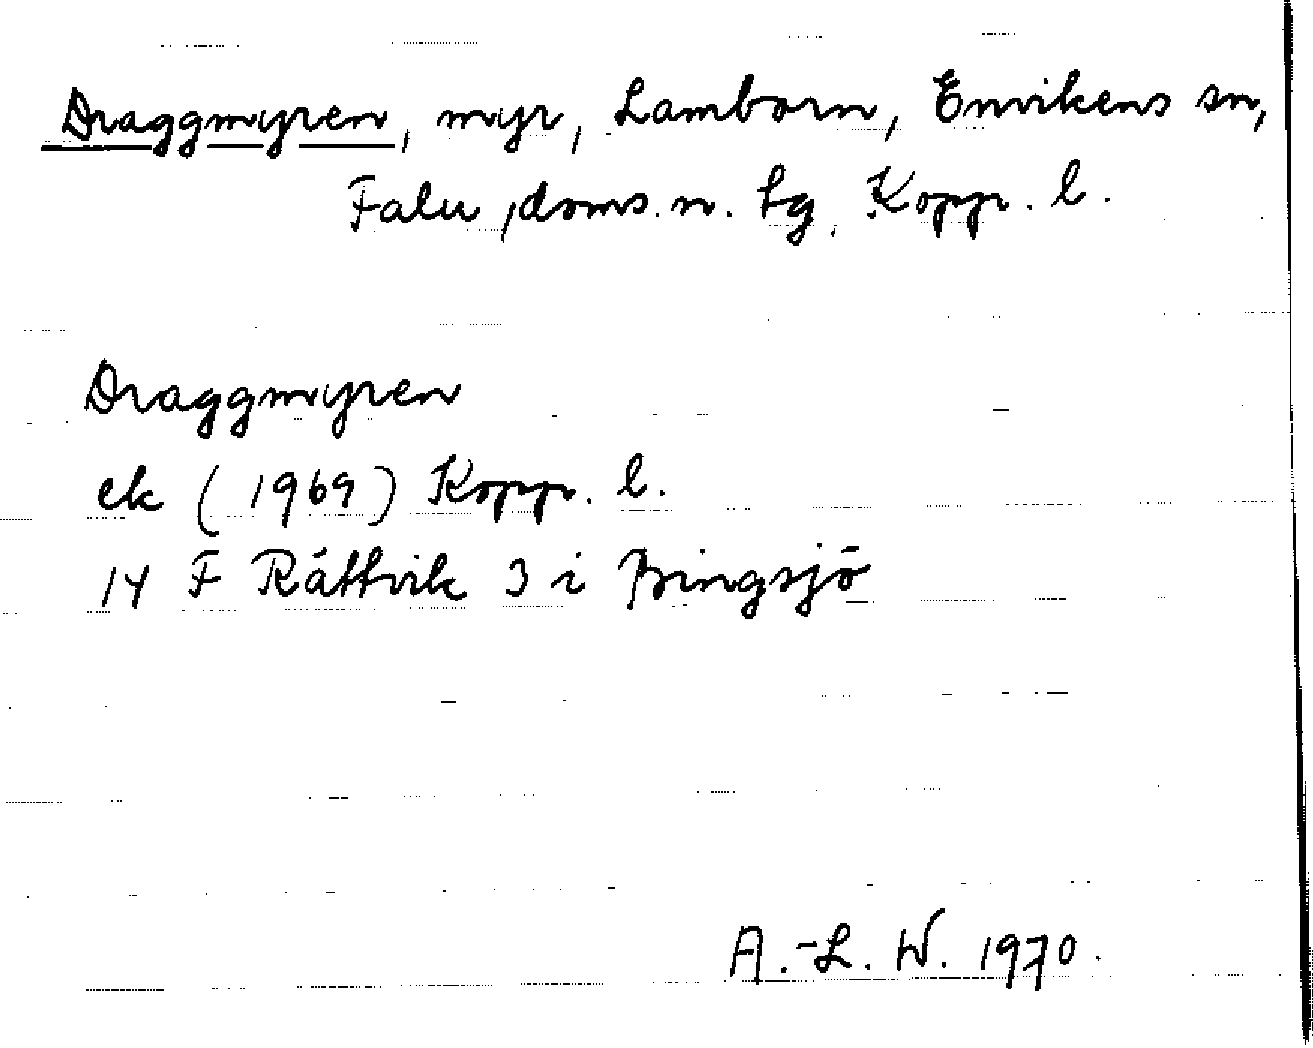 Draggmyren, myr, Lamborn, Envikens sn,
Falu doms. n. tg, Kopp. l.
Draggmyren
ek (1969) Kopp. l.
14 F Rättvik 3 i Bingsjö
A.-L. W. 1970.